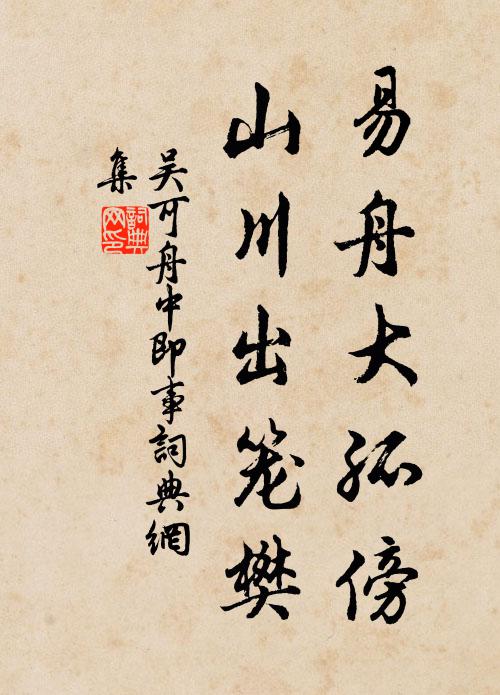 易舟大孤傍
山川出笼樊
吴可舟中即事詞典網
集
詞典网印